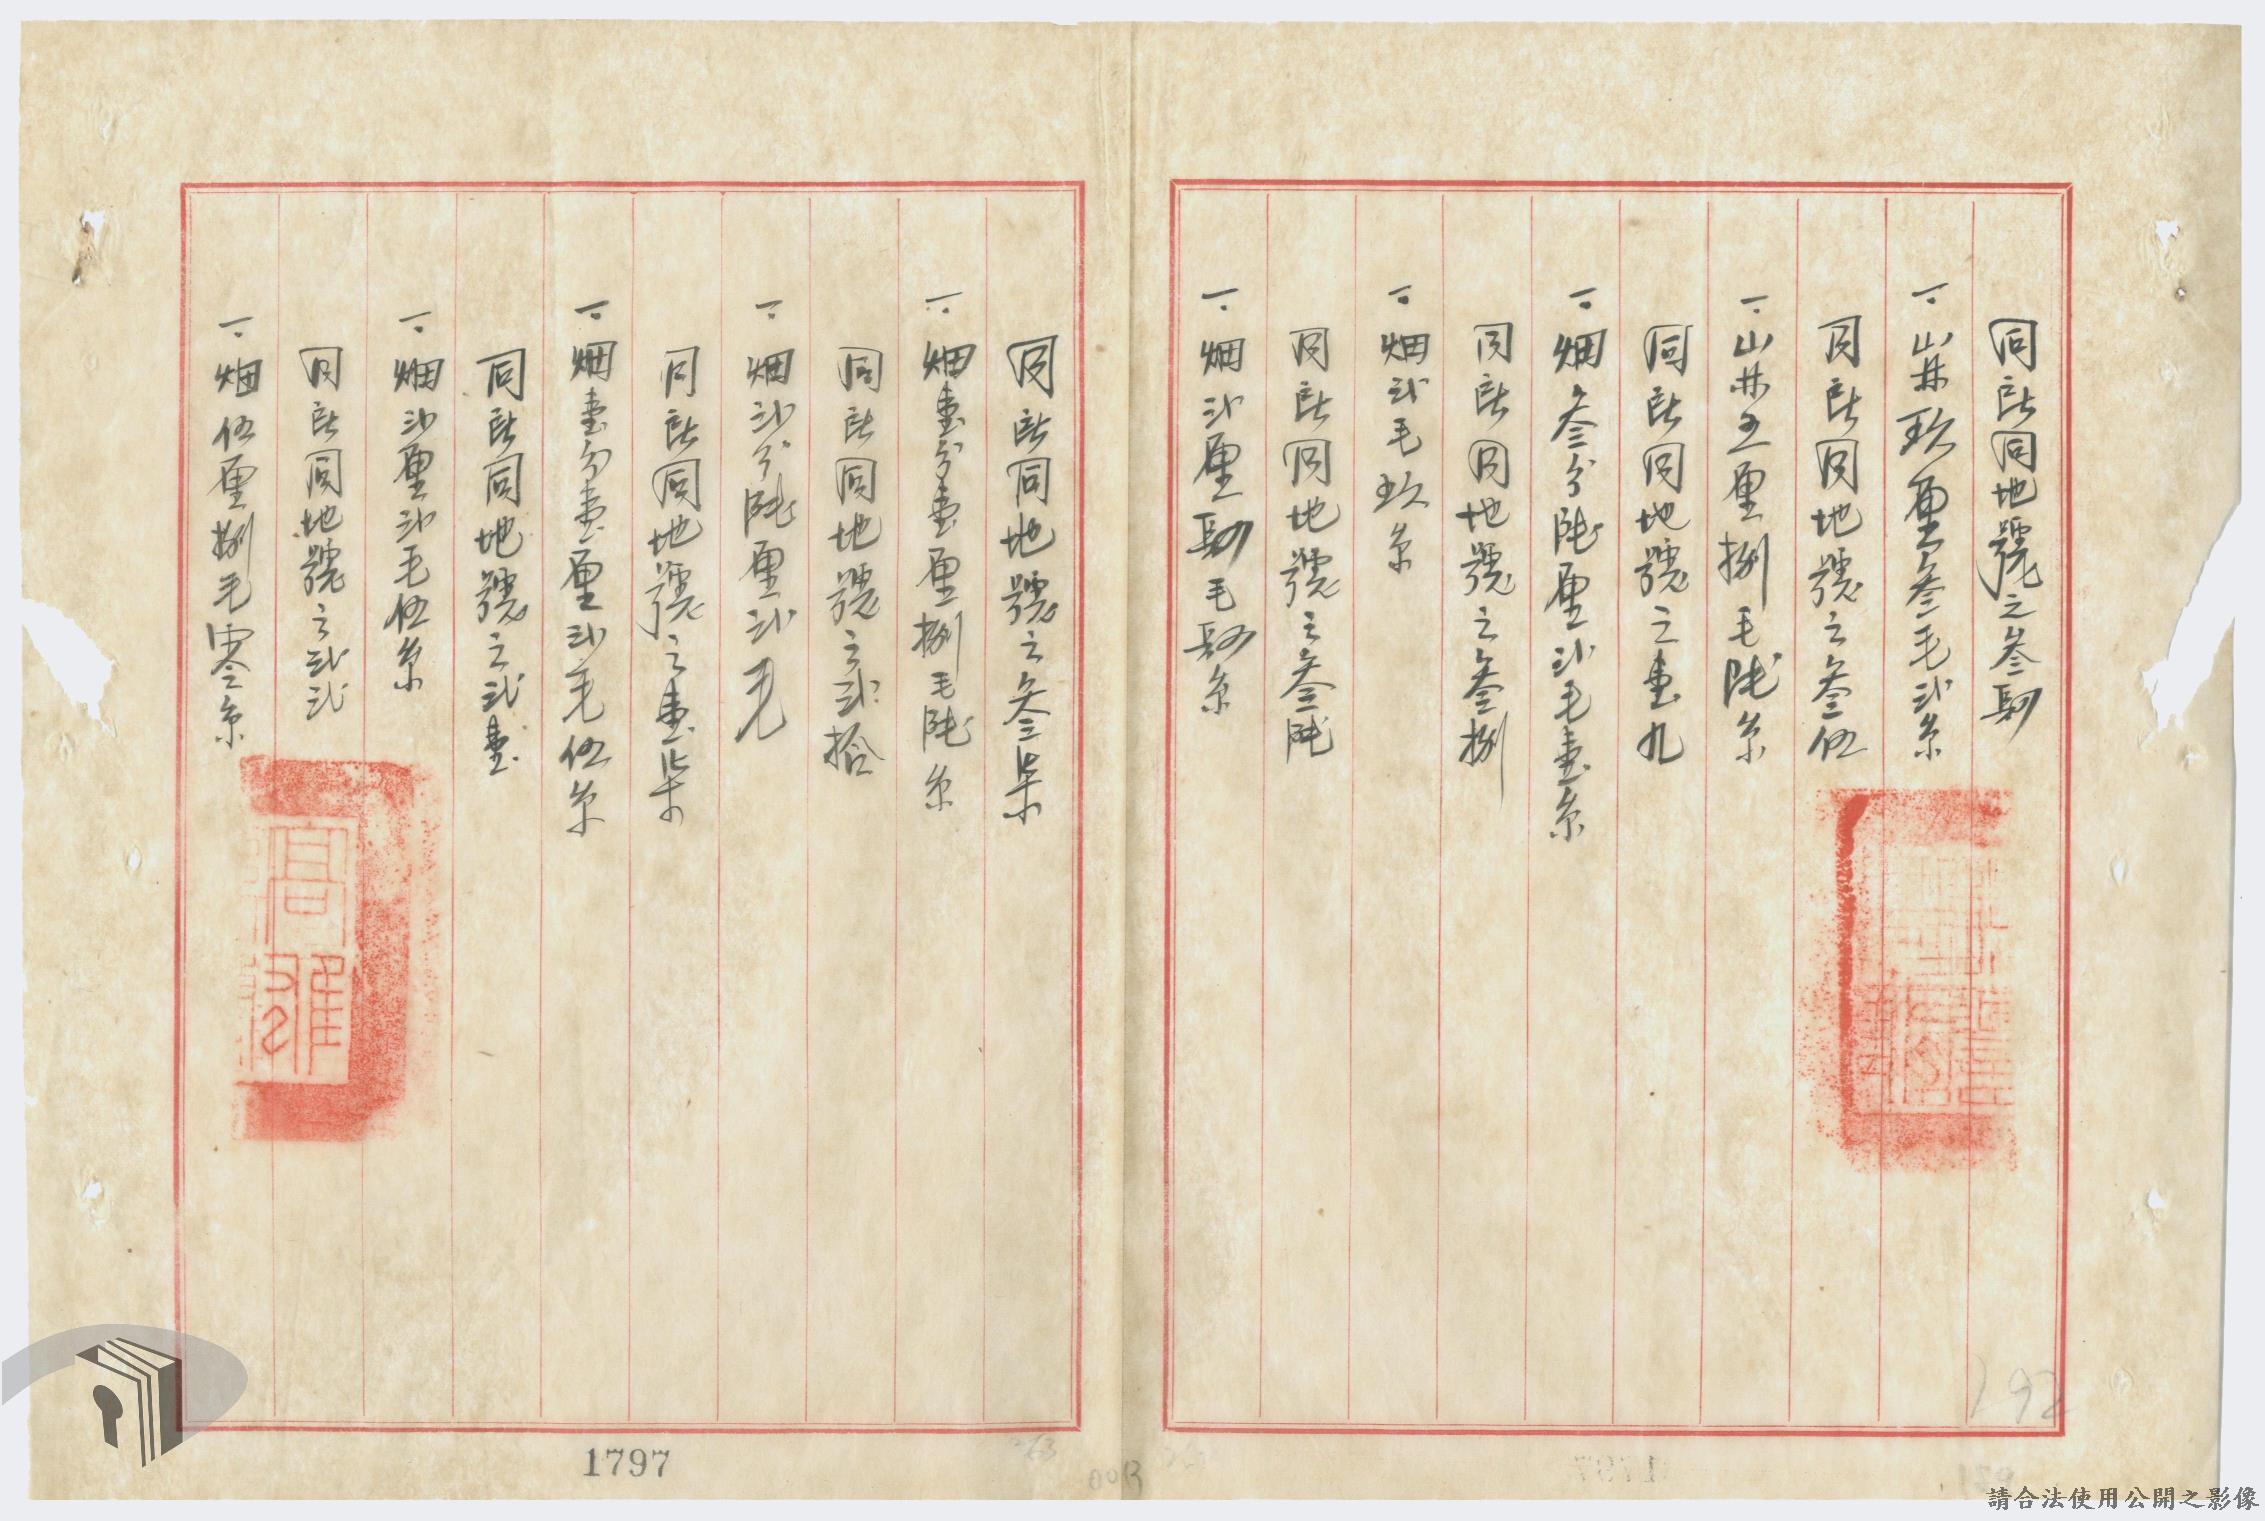 同所同地號之參肆
一、山林玖厘參毛弍糸
同所同地號之參伍
一、山林五厘捌毛陸糸
同所同地號之壹九
一、畑參分陸厘弍毛壹糸
同所同地號之參捌
一、畑弍毛玖糸
同所同地號之參陸
一、畑弍厘肆毛肆糸
同所同地號之參柒
一、畑壹分壹厘捌毛陸糸
同所同地號之弍拾
一、畑弍分陸厘弍毛
同所同地號之壹柒
一、畑壹分壹厘弍毛伍糸
同所同地號之弍壹
一、畑弍厘弍毛伍糸
同所同地號之弍弍
一、畑伍厘捌毛零糸
高雄
1797
192
請合法使用公開之影像